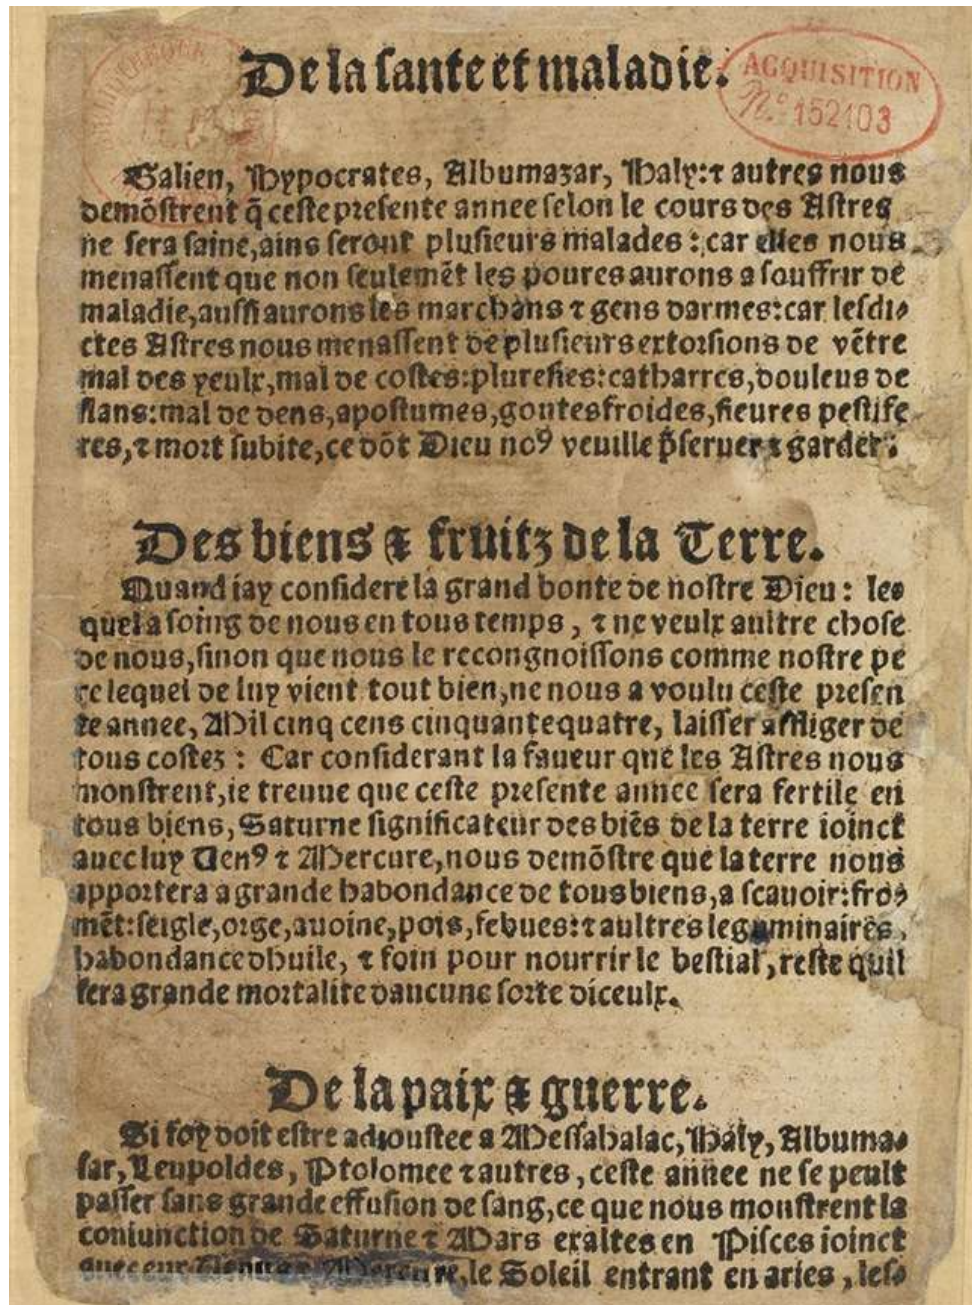 De la sante et maladie.
ACQUISITION
No. 152103
Galien, Hypocrates, Albumazar, Haly:⁊ autres nous
demõstrent q̃ ceste presente annee selon le cours des Astres
ne sera saine, ains seront plusieurs malades : car elles nous
menassent que non seulemẽt les poures aurons a souffrir de
maladie, aussi aurons les marchans ⁊ gens darmes: car lesdi-
ctes Astres nous menassent de plusieurs extorsions de vẽtre
mal des yeulx, mal de costes: pluresies: catharres, douleus de
flans: mal de dens, apostumes, goutes froides, fieures pestife
res, ⁊ mort subite, ce dõt Dieu noꝰ veuille p̃seruer ⁊ garder.
Des biens ⁊ fruitz de la Terre.
Quand iay considere la grand bonte de nostre Dieu : le-
quel a soing de nous en tous temps, ⁊ ne veulx aultre chose
de nous, sinon que nous le recongnoissons comme nostre pe
re lequel de luy vient tout bien, ne nous a voulu ceste presen
te annee, Mil cinq cens cinquante quatre, laisser affliger de
tous costez : Car considerant la faueur que les Astres nous
monstrent, ie treuue que ceste presente annee sera fertile en
tous biens, Saturne significateur des biẽs de la terre ioinct
auec luy Uenꝰ ⁊ Mercure, nous demõstre que la terre nous
apportera a grande habondance de tous biens, a scauoir: fro-
mẽt: seigle, orge, auoine, pois, febues: ⁊ aultres leguminaires,
habondance dhuile, ⁊ foin pour nourrir le bestial, reste quil
sera grande mortalite daucune sorte diceulx.
De la paix ⁊ guerre.
Si foy doit estre adioustee a Messahalac, Haly, Albuma-
sar, Leupoldes, Ptolomee ⁊ autres, ceste annee ne se peult
passer sans grande effusion de sang, ce que nous monstrent la
coniunction de Saturne ⁊ Mars exaltes en Pisces ioinct
auec eux Uenus ⁊ Mercure, le Soleil entrant en aries, les-